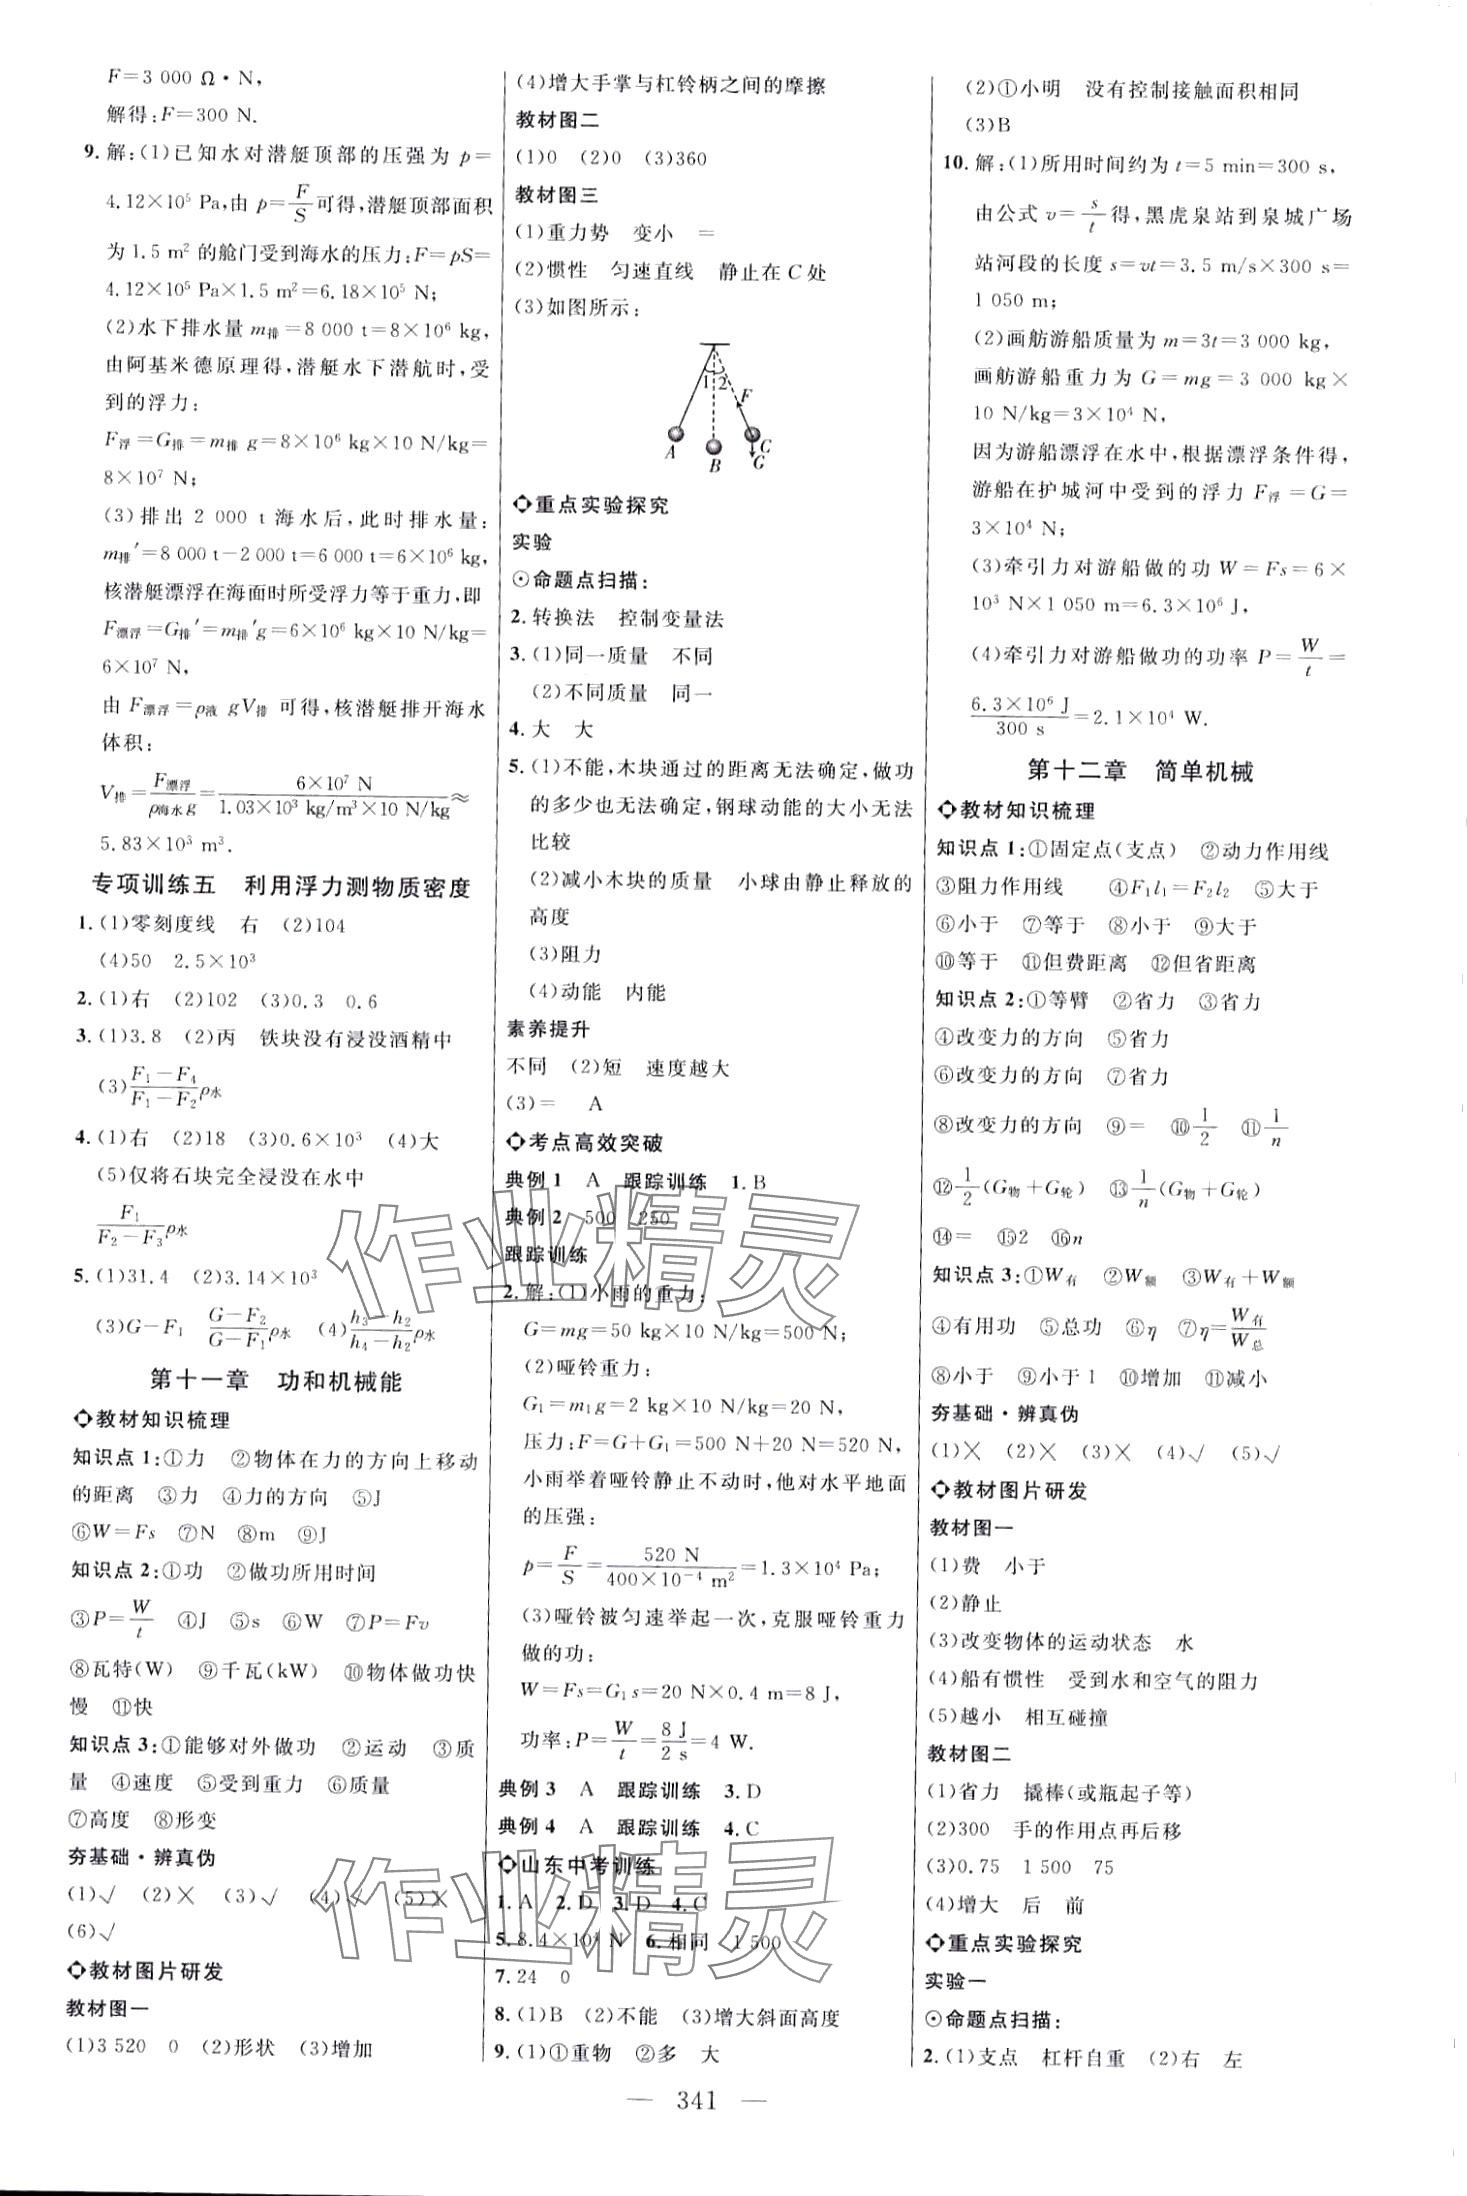 F=3 000 Ω·N,
解得:F=300 N.
9. 解:(1)已知水对潜艇顶部的压强为 p=
4.12×10⁵ Pa,由 p=F/S可得,潜艇顶部面积
为 1.5 m² 的舱门受到海水的压力:F=pS=
4.12×10⁵ Pa×1.5 m²=6.18×10⁵ N;
(2)水下排水量 m排=8 000 t=8×10⁶ kg,
由阿基米德原理得,潜艇水下潜航时,受
到的浮力:
F浮=G排=m排 g=8×10⁶ kg×10 N/kg=
8×10⁷ N;
(3)排出 2 000 t 海水后,此时排水量:
m排′=8 000 t−2 000 t=6 000 t=6×10⁶ kg,
核潜艇漂浮在海面时所受浮力等于重力,即
F漂浮=G排′=m排′g=6×10⁶ kg×10 N/kg=
6×10⁷ N,
由 F漂浮=ρ液 gV排 可得,核潜艇排开海水
体积:
V排=F漂浮/ρ海水g=6×10⁷ N/1.03×10³ kg/m³×10 N/kg≈
5.83×10³ m³.
专项训练五 利用浮力测物质密度
1. (1)零刻度线 右 (2)104
(4)50 2.5×10³
2. (1)右 (2)102 (3)0.3 0.6
3. (1)3.8 (2)丙 铁块没有浸没酒精中
(3)F₁−F₄/F₁−F₂ρ水
4. (1)右 (2)18 (3)0.6×10³ (4)大
(5)仅将石块完全浸没在水中
F₁/F₂−F₃ρ水
5. (1)31.4 (2)3.14×10³
(3)G−F₁ G−F₂/G−F₁ρ水 (4)h₃−h₂/h₄−h₂ρ水
第十一章 功和机械能
◇教材知识梳理
知识点 1:①力 ②物体在力的方向上移动
的距离 ③力 ④力的方向 ⑤J
⑥W=Fs ⑦N ⑧m ⑨J
知识点 2:①功 ②做功所用时间
③P=W/t ④J ⑤s ⑥W ⑦P=Fv
⑧瓦特(W) ⑨千瓦(kW) ⑩物体做功快
慢 ⑪快
知识点 3:①能够对外做功 ②运动 ③质
量 ④速度 ⑤受到重力 ⑥质量
⑦高度 ⑧形变
夯基础·辨真伪
(1)√ (2)× (3)√ (4)√ (5)×
(6)√
◇教材图片研发
教材图一
(1)3 520 0 (2)形状 (3)增加
(4)增大手掌与杠铃柄之间的摩擦
教材图二
(1)0 (2)0 (3)360
教材图三
(1)重力势 变小 =
(2)惯性 匀速直线 静止在 C 处
(3)如图所示:
1 2 F
A B C G
◇重点实验探究
实验
⊙命题点扫描:
2. 转换法 控制变量法
3. (1)同一质量 不同
(2)不同质量 同一
4. 大 大
5. (1)不能,木块通过的距离无法确定,做功
的多少也无法确定,钢球动能的大小无法
比较
(2)减小木块的质量 小球由静止释放的
高度
(3)阻力
(4)动能 内能
素养提升
不同 (2)短 速度越大
(3)= A
◇考点高效突破
典例 1 A 跟踪训练 1. B
典例 2 500 250
跟踪训练
2. 解:(1)小雨的重力:
G=mg=50 kg×10 N/kg=500 N;
(2)哑铃重力:
G₁=m₁g=2 kg×10 N/kg=20 N,
压力:F=G+G₁=500 N+20 N=520 N,
小雨举着哑铃静止不动时,他对水平地面
的压强:
p=F/S=520 N/400×10⁻⁴ m²=1.3×10⁴ Pa;
(3)哑铃被匀速举起一次,克服哑铃重力
做的功:
W=Fs=G₁s=20 N×0.4 m=8 J,
功率:P=W/t=8 J/2 s=4 W.
典例 3 A 跟踪训练 3. D
典例 4 A 跟踪训练 4. C
◇山东中考训练
1. A 2. D 3. D 4. C
5. 8.4×10⁴ N 6. 相同 1 500
7. 24 0
8. (1)B (2)不能 (3)增大斜面高度
9. (1)①重物 ②多 大
(2)①小明 没有控制接触面积相同
(3)B
10. 解:(1)所用时间约为 t=5 min=300 s,
由公式 v=s/t得,黑虎泉站到泉城广场
站河段的长度 s=vt=3.5 m/s×300 s=
1 050 m;
(2)画舫游船质量为 m=3t=3 000 kg,
画舫游船重力为 G=mg=3 000 kg×
10 N/kg=3×10⁴ N,
因为游船漂浮在水中,根据漂浮条件得,
游船在护城河中受到的浮力 F浮=G=
3×10⁴ N;
(3)牵引力对游船做的功 W=Fs=6×
10³ N×1 050 m=6.3×10⁶ J,
(4)牵引力对游船做功的功率 P=W/t=
6.3×10⁶ J/300 s=2.1×10⁴ W.
第十二章 简单机械
◇教材知识梳理
知识点 1:①固定点(支点) ②动力作用线
③阻力作用线 ④F₁l₁=F₂l₂ ⑤大于
⑥小于 ⑦等于 ⑧小于 ⑨大于
⑩等于 ⑪但费距离 ⑫但省距离
知识点 2:①等臂 ②省力 ③省力
④改变力的方向 ⑤省力
⑥改变力的方向 ⑦省力
⑧改变力的方向 ⑨= ⑩1/2 ⑪1/n
⑫1/2(G物+G轮) ⑬1/n(G物+G轮)
⑭= ⑮2 ⑯n
知识点 3:①W有 ②W额 ③W有+W额
④有用功 ⑤总功 ⑥η ⑦η=W有/W总
⑧小于 ⑨小于 1 ⑩增加 ⑪减小
夯基础·辨真伪
(1)× (2)× (3)× (4)√ (5)√
◇教材图片研发
教材图一
(1)费 小于
(2)静止
(3)改变物体的运动状态 水
(4)船有惯性 受到水和空气的阻力
(5)越小 相互碰撞
教材图二
(1)省力 撬棒(或瓶起子等)
(2)300 手的作用点再后移
(3)0.75 1 500 75
(4)增大 后 前
◇重点实验探究
实验一
⊙命题点扫描:
2. (1)支点 杠杆自重 (2)右 左
— 341 —
作业精灵
作业精灵